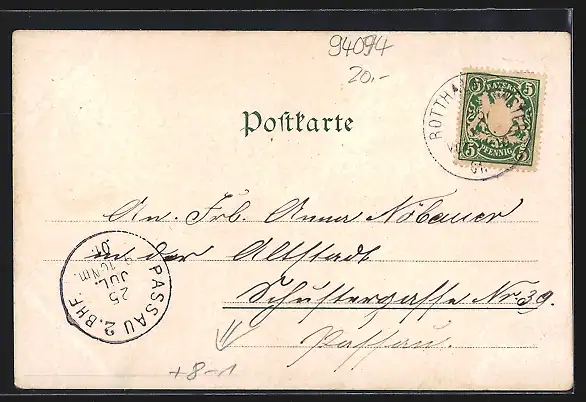 94094
20.-
Postkarte
BAYERN
5 5
5 PFENNIG 5
ROTTHAL
01.
An. Frl. Anna Nöbauer
in der Altstadt
Schustergasse Nr. 39.
Passau.
PASSAU 2. BHF.
25
JUL.
Nm.
01.
+8-1